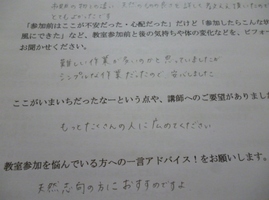 とてもよかったです
「参加前はここが不安だった・心配だった」だけど「参加したらこんな
風にできた」など、教室参加前と後の気持ちや体の変化などを、ビフォー
お聞かせください。
難しい作業が多いのかと思っていましたが
シンプルな作業だったので安心しました
ここがいまいちだったなーという点や、講師へのご要望がありまし
もっとたくさんの人に広めてください
教室参加を悩んでいる方への一言アドバイス！をお願いします。
天然志向の方におすすめですよ